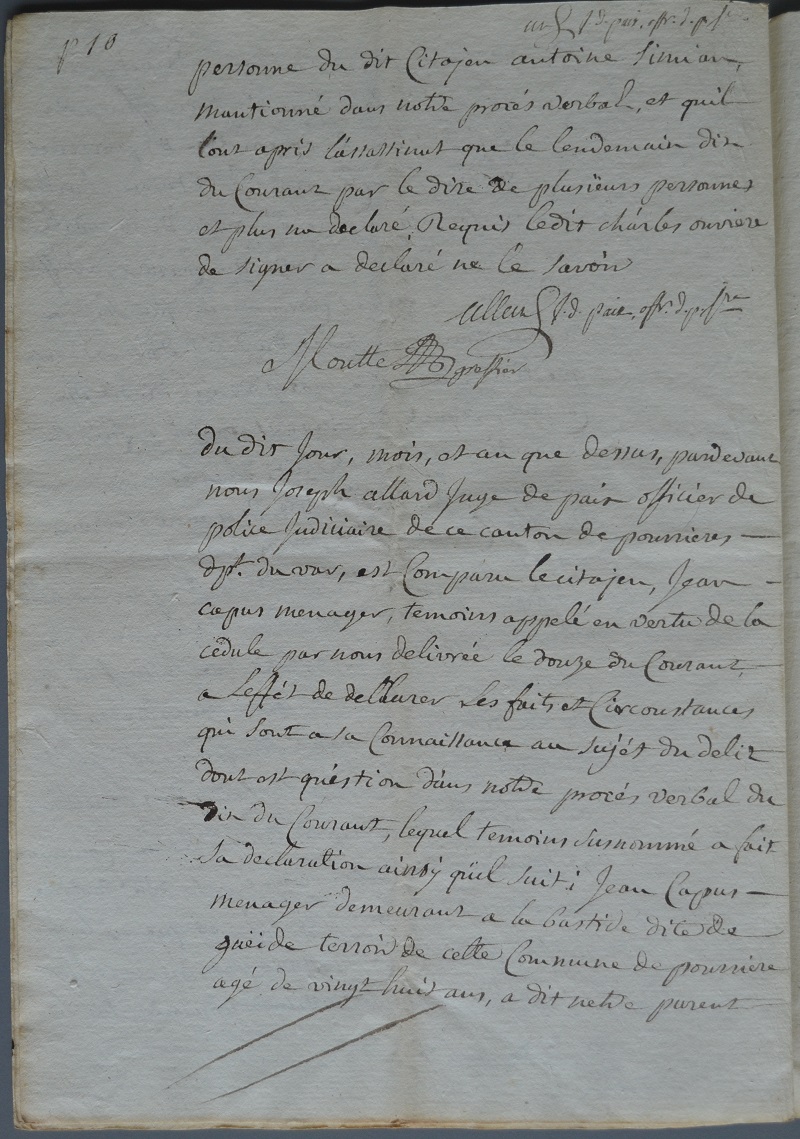 p 10
personne du dit Citojen antoine Simian,
mantionné dans notre procés verbal, et quil
lont apris lássassinat que le lendemain dix
du Courant par le dire de plusïeurs personnes
et plus na declaré, Requis ledit chárles ouviere
de signer a declaré ne le savoir
allard J. d. paix, offr. d. p. jre
Moutte greffier
du dit Jour, mois, et an que dessus, pardevant
nous Joseph allard Juge de paix officier de
police Judiciaire de ce canton de pourrieres —
dpt. du var, est Comparu le citojen, Jean —
capus menager, temoins appelé en vertu de la
cedule par nous delivrée le douze du Courant,
a Leffét de declarer Les faits et Circonstances
qui sont a sa Connaissance au sujét du delit
dont est quéstion dáns notre procés verbal du
dix du Courant, lequel temoins susnommé a fait
sa declaration ainsÿ qúil suit; Jean Capus —
menager demeurant a la bastide dite de
gaëide terroir de cette Commune de pourriere
agé de vingt huit ans, a dit netre parent